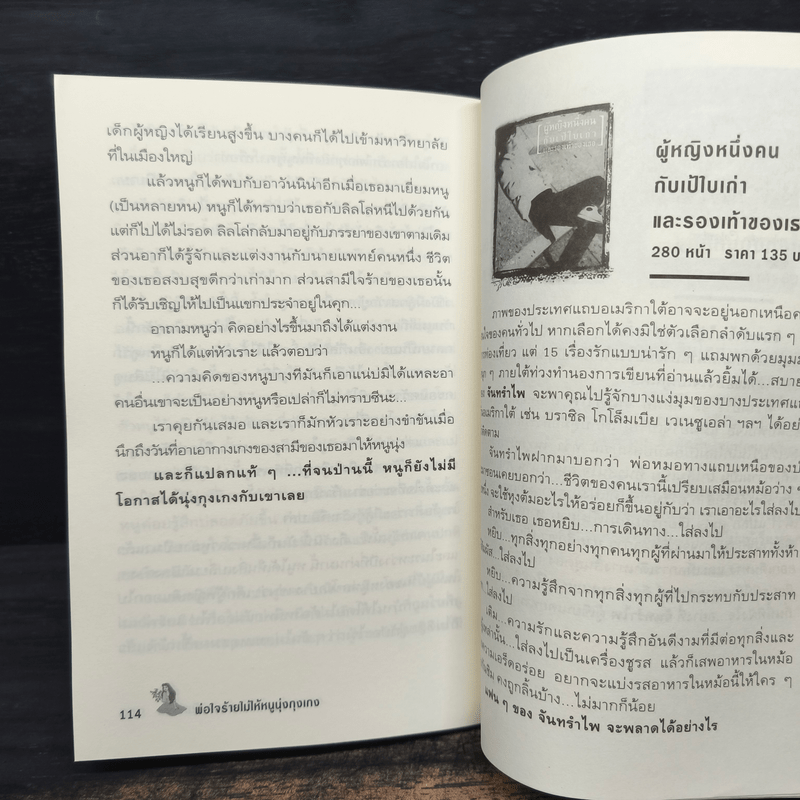 เด็กผู้หญิงได้เรียนสูงขึ้น บางคนก็ได้ไปเข้ามหาวิทยาลัย
ที่ในเมืองใหญ่
แล้วหนูก็ได้พบกับอาวันนิน่าอีกเมื่อเธอมาเยี่ยมหนู
(เป็นหลายหน) หนูก็ได้ทราบว่าเธอกับลิลโล่หนีไปด้วยกัน
แต่ก็ไปได้ไม่รอด ลิลโล่กลับมาอยู่กับภรรยาของเขาตามเดิม
ส่วนอาก็ได้รู้จักและแต่งงานกับนายแพทย์คนหนึ่ง ชีวิต
ของเธอสงบสุขดีกว่าเก่ามาก ส่วนสามีใจร้ายของเธอนั้น
ก็ได้รับเชิญให้ไปเป็นแขกประจำอยู่ในคุก...
อาถามหนูว่า คิดอย่างไรขึ้นมาถึงได้แต่งงาน
หนูก็ได้แต่หัวเราะ แล้วตอบว่า
...ความคิดของหนูบางทีมันก็เอาแน่บ่มิได้แหละอา
คนอื่นเขาจะเป็นอย่างหนูหรือเปล่าก็ไม่ทราบซีนะ...
เราคุยกันเสมอ และเราก็มักหัวเราะอย่างขำขันเมื่อ
นึกถึงวันที่อาเอากางเกงของสามีของเธอมาให้หนูนุ่ง
และก็แปลกแท้ ๆ ...ที่จนป่านนี้ หนูก็ยังไม่มี
โอกาสได้นุ่งกุงเกงกับเขาเลย
114 พ่อใจร้ายไม่ให้หนูนุ่งกุงเกง
ผู้หญิงหนึ่งคน
กับเป้ใบเก่า
และรองเท้าของเธ
280 หน้า ราคา 135 บ
ภาพของประเทศแถบอเมริกาใต้อาจจะอยู่นอกเหนือค
ของคนทั่วไป หากเลือกได้คงมิใช่ตัวเลือกลำดับแรก ๆ
ท่องเที่ยว แต่ 15 เรื่องรักแบบน่ารัก ๆ แถมพกด้วยมุมม
ๆ ภายใต้ท่วงทำนองการเขียนที่อ่านแล้วยิ้มได้...สบาย
จันทรำไพ จะพาคุณไปรู้จักบางแง่มุมของบางประเทศแถ
อเมริกาใต้ เช่น บราซิล โกโล็มเบีย เวเนซูเอล่า ฯลฯ ได้อย่
ติดตาม
จันทรำไพฝากมาบอกว่า พ่อหมอทางแถบเหนือของป
เคยบอกว่า...ชีวิตของคนเรานี้เปรียบเสมือนหม้อว่าง ๆ
จะใช้หุงต้มอะไรให้อร่อยก็ขึ้นอยู่กับว่า เราเอาอะไรใส่ลงไป
สำหรับเธอ เธอหยิบ...การเดินทาง...ใส่ลงไป
หยิบ...ทุกสิ่งทุกอย่างทุกคนทุกผู้ที่ผ่านมาให้ประสาททั้งห้า
...ใส่ลงไป
หยิบ...ความรู้สึกจากทุกสิ่งทุกผู้ที่ไปกระทบกับประสาท
ใส่ลงไป
เติม...ความรักและความรู้สึกอันดีงามที่มีต่อทุกสิ่งและ
เหล่านั้น...ใส่ลงไปเป็นเครื่องชูรส แล้วก็เสพอาหารในหม้อ
ความเอร็ดอร่อย อยากจะแบ่งรสอาหารในหม้อนี้ให้ใคร ๆ
คงถูกลิ้นบ้าง...ไม่มากก็น้อย
แฟน ๆ ของ จันทรำไพ จะพลาดได้อย่างไร